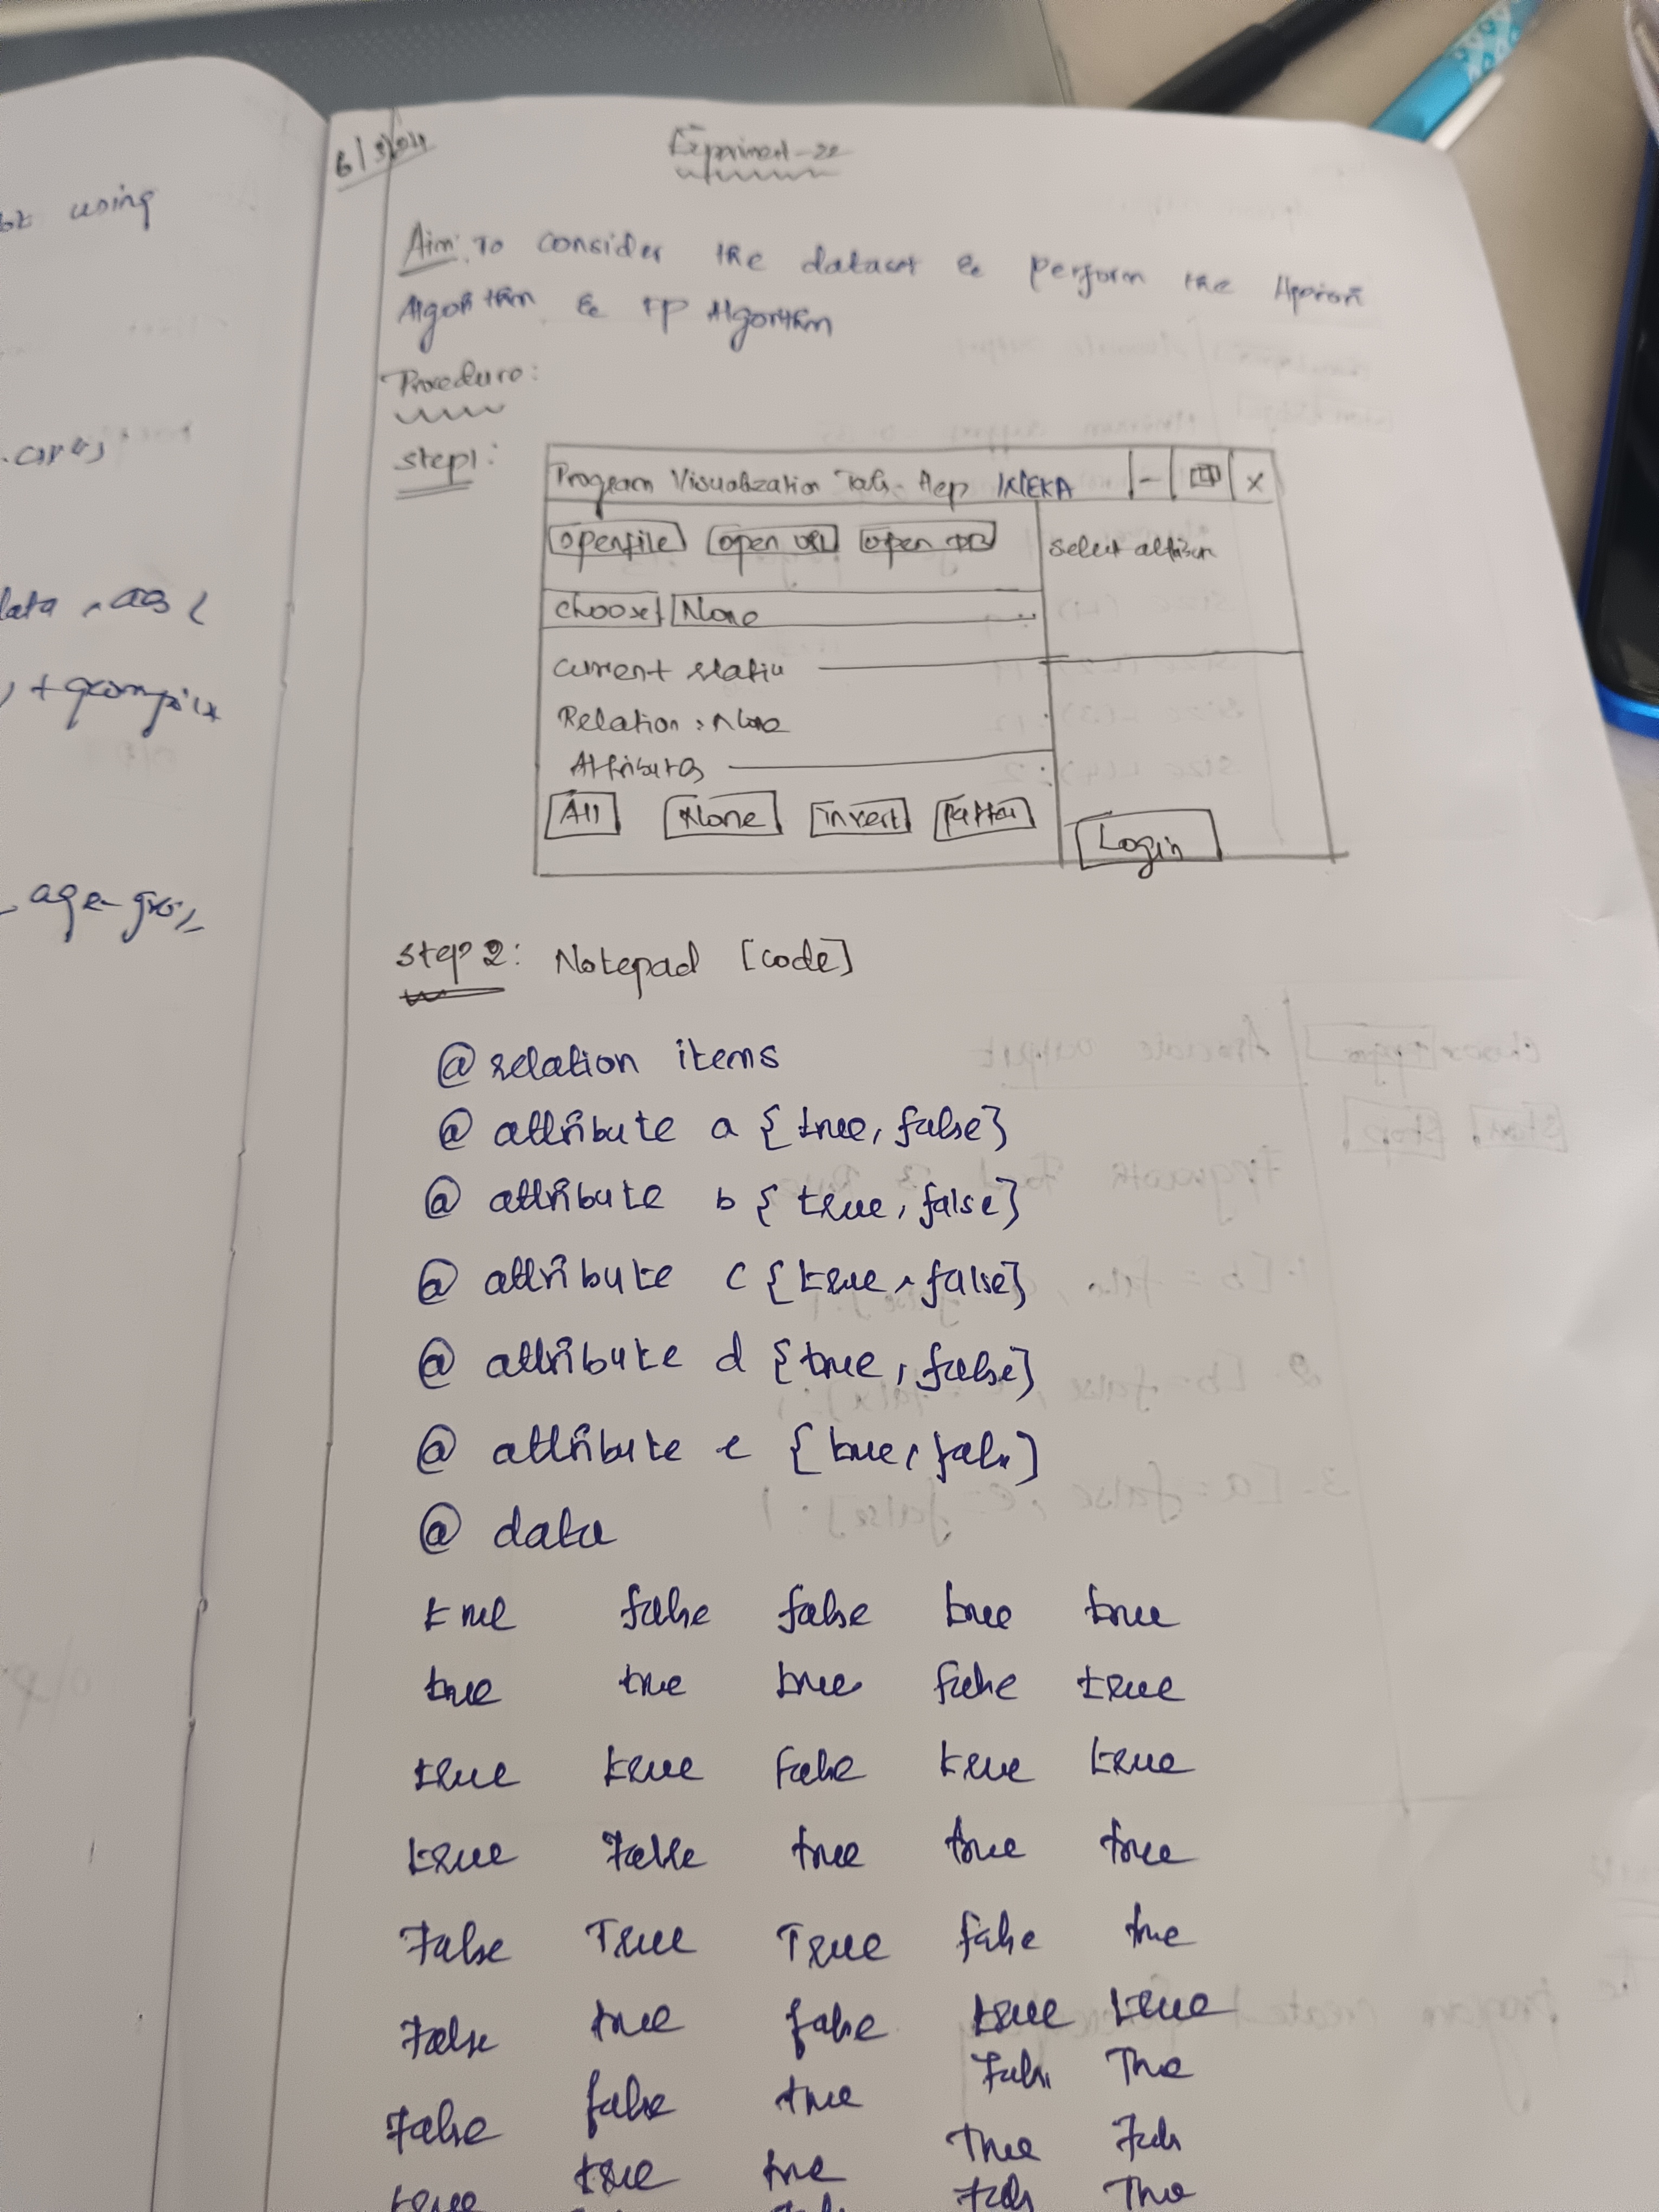 bt using
.csv",
data , aes (
) + geom_pix
_ age_gro,
6/3/024
Expriment-22
Aim: To consider the dataset & perform the Apriori
Algorithm & FP Algorithm
Procedure:
step1:
Program Visualization Tools Help WEKA - X
openfile open URL open DB select attribu
choose None
current relatiu
Relation : None
Attributes
All None invert patter Login
step 2: Notepad [code]
@ relation items
@ attribute a {true, false}
@ attribute b {true, false}
@ attribute c {true, false}
@ attribute d {true, false}
@ attribute e {true, false}
@ data
true false false true true
true true true false true
true true false true true
true False true true true
False True True false true
False true false true true
False false true False True
true true true True False
False True